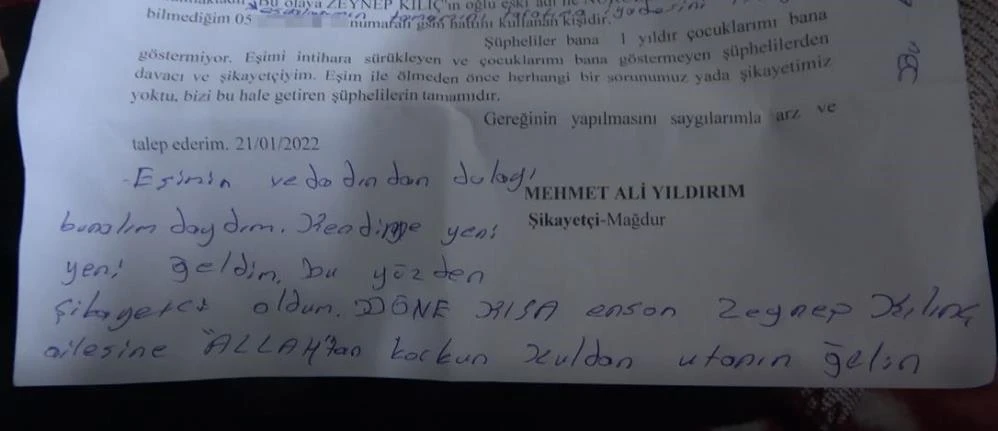 Bu olaya ZEYNEP KILIÇ'ın oğlu eski adı ile
bilmediğim 05 numaralı gsm hattını kullanan kişidir.
Şüpheliler bana 1 yıldır çocuklarımı bana
göstermiyor. Eşimi intihara sürükleyen ve çocuklarımı bana göstermeyen şüphelilerden
davacı ve şikayetçiyim. Eşim ile ölmeden önce herhangi bir sorunumuz yada şikayetimiz
yoktu, bizi bu hale getiren şüphelilerin tamamıdır.
Gereğinin yapılmasını saygılarımla arz ve
talep ederim. 21/01/2022
-Eşimin vedadından dolayı
MEHMET ALİ YILDIRIM
Şikayetçi-Mağdur
bunalımdaydım. Kendime yeni
yeni geldim, bu yüzden
Şikayetci oldum. DÖNE KISA enson Zeynep Kılınç
ailesine "ALLAH'tan korkun kuldan utanın gelin